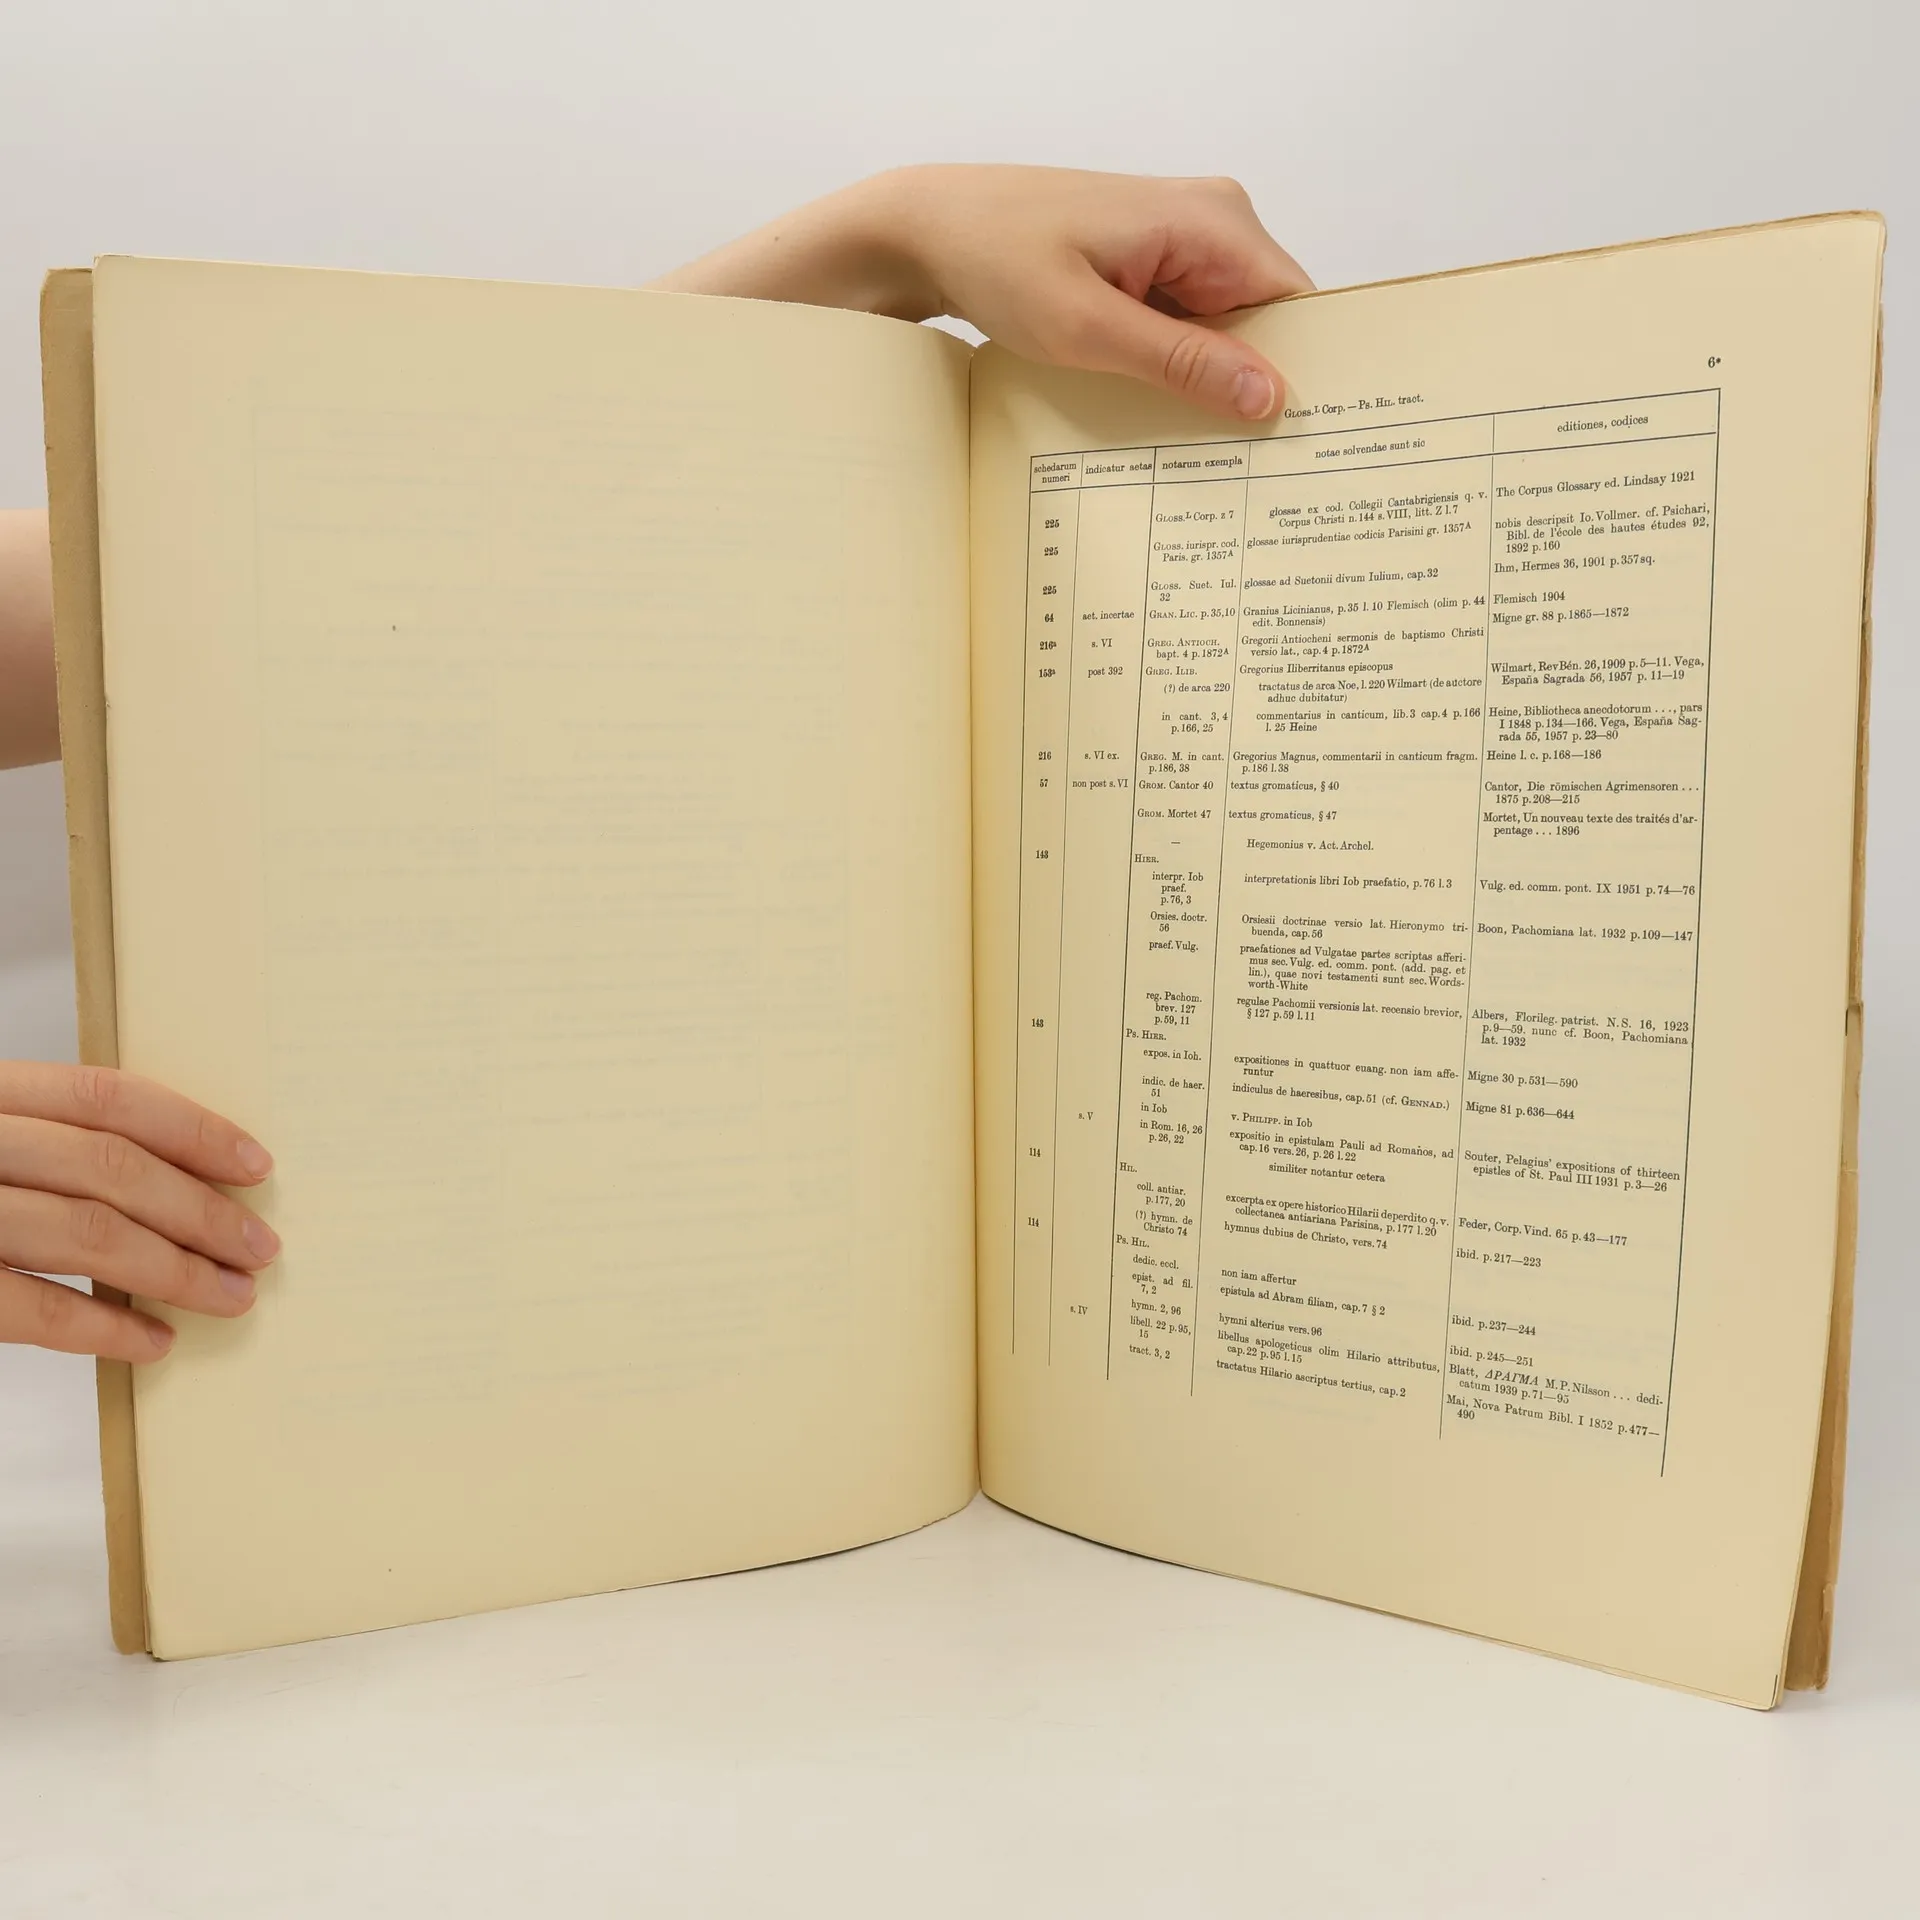 6*
Gloss.L Corp. — Ps. Hil. tract.
schedarum numeri | indicatur aetas | notarum exempla | notae solvendae sunt sic | editiones, codices
225 | Gloss.L Corp. z 7 | glossae ex cod. Collegii Cantabrigiensis q. v. | The Corpus Glossary ed. Lindsay 1921
Corpus Christi n. 144 s. VIII, litt. Z l. 7
225 | Gloss. iurispr. cod. | glossae iurisprudentiae codicis Parisini gr. 1357A | nobis descripsit Io. Vollmer. cf. Psichari,
Paris. gr. 1357A | Bibl. de l'école des hautes études 92,
1892 p. 160
225 | Gloss. Suet. Iul. | glossae ad Suetonii divum Iulium, cap. 32 | Ihm, Hermes 36, 1901 p. 357 sq.
32
64 | aet. incertae | Gran. Lic. p. 35, 10 | Granius Licinianus, p. 35 l. 10 Flemisch (olim p. 44 | Flemisch 1904
edit. Bonnensis)
216a | s. VI | Greg. Antioch. | Gregorii Antiocheni sermonis de baptismo Christi | Migne gr. 88 p. 1865—1872
bapt. 4 p. 1872A | versio lat., cap. 4 p. 1872A
153a | post 392 | Greg. Ilib. | Gregorius Iliberritanus episcopus
(?) de arca 220 | tractatus de arca Noe, l. 220 Wilmart (de auctore | Wilmart, RevBén. 26, 1909 p. 5—11. Vega,
adhuc dubitatur) | España Sagrada 56, 1957 p. 11—19
in cant. 3, 4 | commentarius in canticum, lib. 3 cap. 4 p. 166 | Heine, Bibliotheca anecdotorum . . ., pars
p. 166, 25 | l. 25 Heine | I 1848 p. 134—166. Vega, España Sag-
rada 55, 1957 p. 23—80
216 | s. VI ex. | Greg. M. in cant. | Gregorius Magnus, commentarii in canticum fragm. | Heine l. c. p. 168—186
p. 186, 38 | p. 186 l. 38
57 | non post s. VI | Grom. Cantor 40 | textus gromaticus, § 40 | Cantor, Die römischen Agrimensoren . . .
1875 p. 208—215
Grom. Mortet 47 | textus gromaticus, § 47 | Mortet, Un nouveau texte des traités d'ar-
pentage . . . 1896
— | Hegemonius v. Act. Archel.
143 | Hier.
interpr. Iob | interpretationis libri Iob praefatio, p. 76 l. 3 | Vulg. ed. comm. pont. IX 1951 p. 74—76
praef.
p. 76, 3
Orsies. doctr. | Orsiesii doctrinae versio lat. Hieronymo tri- | Boon, Pachomiana lat. 1932 p. 109—147
56 | buenda, cap. 56
praef. Vulg. | praefationes ad Vulgatae partes scriptas afferi-
mus sec. Vulg. ed. comm. pont. (add. pag. et
lin.), quae novi testamenti sunt sec. Words-
worth-White
reg. Pachom. | regulae Pachomii versionis lat. recensio brevior, | Albers, Florileg. patrist. N. S. 16, 1923
brev. 127 | § 127 p. 59 l. 11 | p. 9—59. nunc cf. Boon, Pachomiana
p. 59, 11 | lat. 1932
143 | Ps. Hier.
expos. in Ioh. | expositiones in quattuor euang. non iam affe- | Migne 30 p. 531—590
runtur
indic. de haer. | indiculus de haeresibus, cap. 51 (cf. Gennad.) | Migne 81 p. 636—644
51
in Iob | v. Philipp. in Iob
s. V | in Rom. 16, 26 | expositio in epistulam Pauli ad Romanos, ad | Souter, Pelagius' expositions of thirteen
p. 26, 22 | cap. 16 vers. 26, p. 26 l. 22 | epistles of St. Paul III 1931 p. 3—26
similiter notantur cetera
114 | Hil.
coll. antiar. | excerpta ex opere historico Hilarii deperdito q. v. | Feder, Corp. Vind. 65 p. 43—177
p. 177, 20 | collectanea antiariana Parisina, p. 177 l. 20
(?) hymn. de | hymnus dubius de Christo, vers. 74 | ibid. p. 217—223
Christo 74
114 | Ps. Hil.
dedic. eccl. | non iam affertur
epist. ad fil. | epistula ad Abram filiam, cap. 7 § 2 | ibid. p. 237—244
7, 2
hymn. 2, 96 | hymni alterius vers. 96 | ibid. p. 245—251
s. IV | libell. 22 p. 95, | libellus apologeticus olim Hilario attributus, | Blatt, ΔΡΑΓΜΑ M. P. Nilsson . . . dedi-
15 | cap. 22 p. 95 l. 15 | catum 1939 p. 71—95
tract. 3, 2 | tractatus Hilario ascriptus tertius, cap. 2 | Mai, Nova Patrum Bibl. I 1852 p. 477—
490